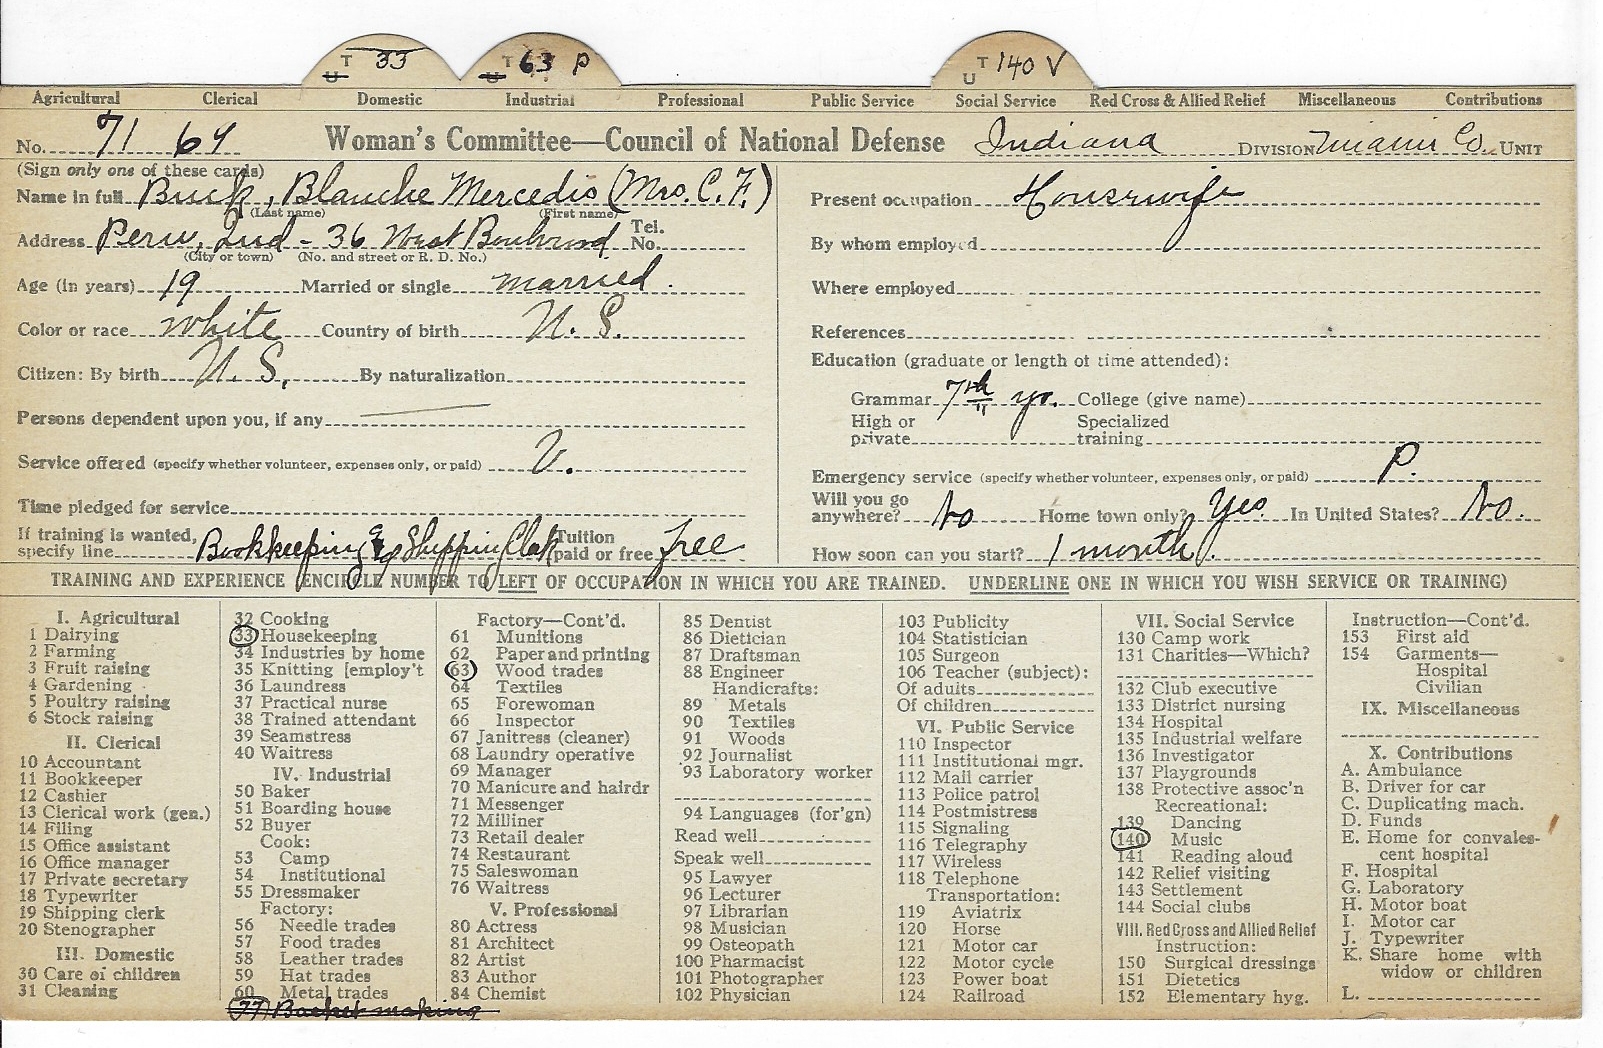 T 33 T 63 P T 140 V
U U U
Agricultural Clerical Domestic Industrial Professional Public Service Social Service Red Cross & Allied Relief Miscellaneous Contributions
No. 71 64 Woman's Committee—Council of National Defense Indiana DIVISION Miami Co. UNIT
(Sign only one of these cards)
Name in full Buck, Blanche Mercedis (Mrs. C. F.)
(Last name) (First name)
Address Peru, Ind - 36 West Boulevard Tel. No.
(City or town) (No. and street or R. D. No.)
Age (in years) 19 Married or single married.
Color or race white Country of birth U. S.
Citizen: By birth U. S. By naturalization
Persons dependent upon you, if any
Service offered (specify whether volunteer, expenses only, or paid) V.
Time pledged for service
If training is wanted, specify line Bookkeeping & Shipping Clerk Tuition paid or free free
Present occupation Housewife
By whom employed
Where employed
References
Education (graduate or length of time attended):
Grammar 7th yr. College (give name)
High or private Specialized training
Emergency service (specify whether volunteer, expenses only, or paid) P.
Will you go anywhere? No Home town only? Yes In United States? No.
How soon can you start? 1 month.
TRAINING AND EXPERIENCE (ENCIRCLE NUMBER TO LEFT OF OCCUPATION IN WHICH YOU ARE TRAINED. UNDERLINE ONE IN WHICH YOU WISH SERVICE OR TRAINING)
I. Agricultural
1 Dairying
2 Farming
3 Fruit raising
4 Gardening
5 Poultry raising
6 Stock raising
II. Clerical
10 Accountant
11 Bookkeeper
12 Cashier
13 Clerical work (gen.)
14 Filing
15 Office assistant
16 Office manager
17 Private secretary
18 Typewriter
19 Shipping clerk
20 Stenographer
III. Domestic
30 Care of children
31 Cleaning
32 Cooking
33 Housekeeping
34 Industries by home
35 Knitting [employ't
36 Laundress
37 Practical nurse
38 Trained attendant
39 Seamstress
40 Waitress
IV. Industrial
50 Baker
51 Boarding house
52 Buyer
Cook:
53 Camp
54 Institutional
55 Dressmaker
Factory:
56 Needle trades
57 Food trades
58 Leather trades
59 Hat trades
60 Metal trades
77 Basket making
Factory—Cont'd.
61 Munitions
62 Paper and printing
63 Wood trades
64 Textiles
65 Forewoman
66 Inspector
67 Janitress (cleaner)
68 Laundry operative
69 Manager
70 Manicure and hairdr
71 Messenger
72 Milliner
73 Retail dealer
74 Restaurant
75 Saleswoman
76 Waitress
V. Professional
80 Actress
81 Architect
82 Artist
83 Author
84 Chemist
85 Dentist
86 Dietician
87 Draftsman
88 Engineer
Handicrafts:
89 Metals
90 Textiles
91 Woods
92 Journalist
93 Laboratory worker
94 Languages (for'gn)
Read well
Speak well
95 Lawyer
96 Lecturer
97 Librarian
98 Musician
99 Osteopath
100 Pharmacist
101 Photographer
102 Physician
103 Publicity
104 Statistician
105 Surgeon
106 Teacher (subject):
Of adults
Of children
VI. Public Service
110 Inspector
111 Institutional mgr.
112 Mail carrier
113 Police patrol
114 Postmistress
115 Signaling
116 Telegraphy
117 Wireless
118 Telephone
Transportation:
119 Aviatrix
120 Horse
121 Motor car
122 Motor cycle
123 Power boat
124 Railroad
VII. Social Service
130 Camp work
131 Charities—Which?
132 Club executive
133 District nursing
134 Hospital
135 Industrial welfare
136 Investigator
137 Playgrounds
138 Protective assoc'n
Recreational:
139 Dancing
140 Music
141 Reading aloud
142 Relief visiting
143 Settlement
144 Social clubs
VIII. Red Cross and Allied Relief
Instruction:
150 Surgical dressings
151 Dietetics
152 Elementary hyg.
Instruction—Cont'd.
153 First aid
154 Garments—
Hospital
Civilian
IX. Miscellaneous
X. Contributions
A. Ambulance
B. Driver for car
C. Duplicating mach.
D. Funds
E. Home for convales-
cent hospital
F. Hospital
G. Laboratory
H. Motor boat
I. Motor car
J. Typewriter
K. Share home with
widow or children
L.